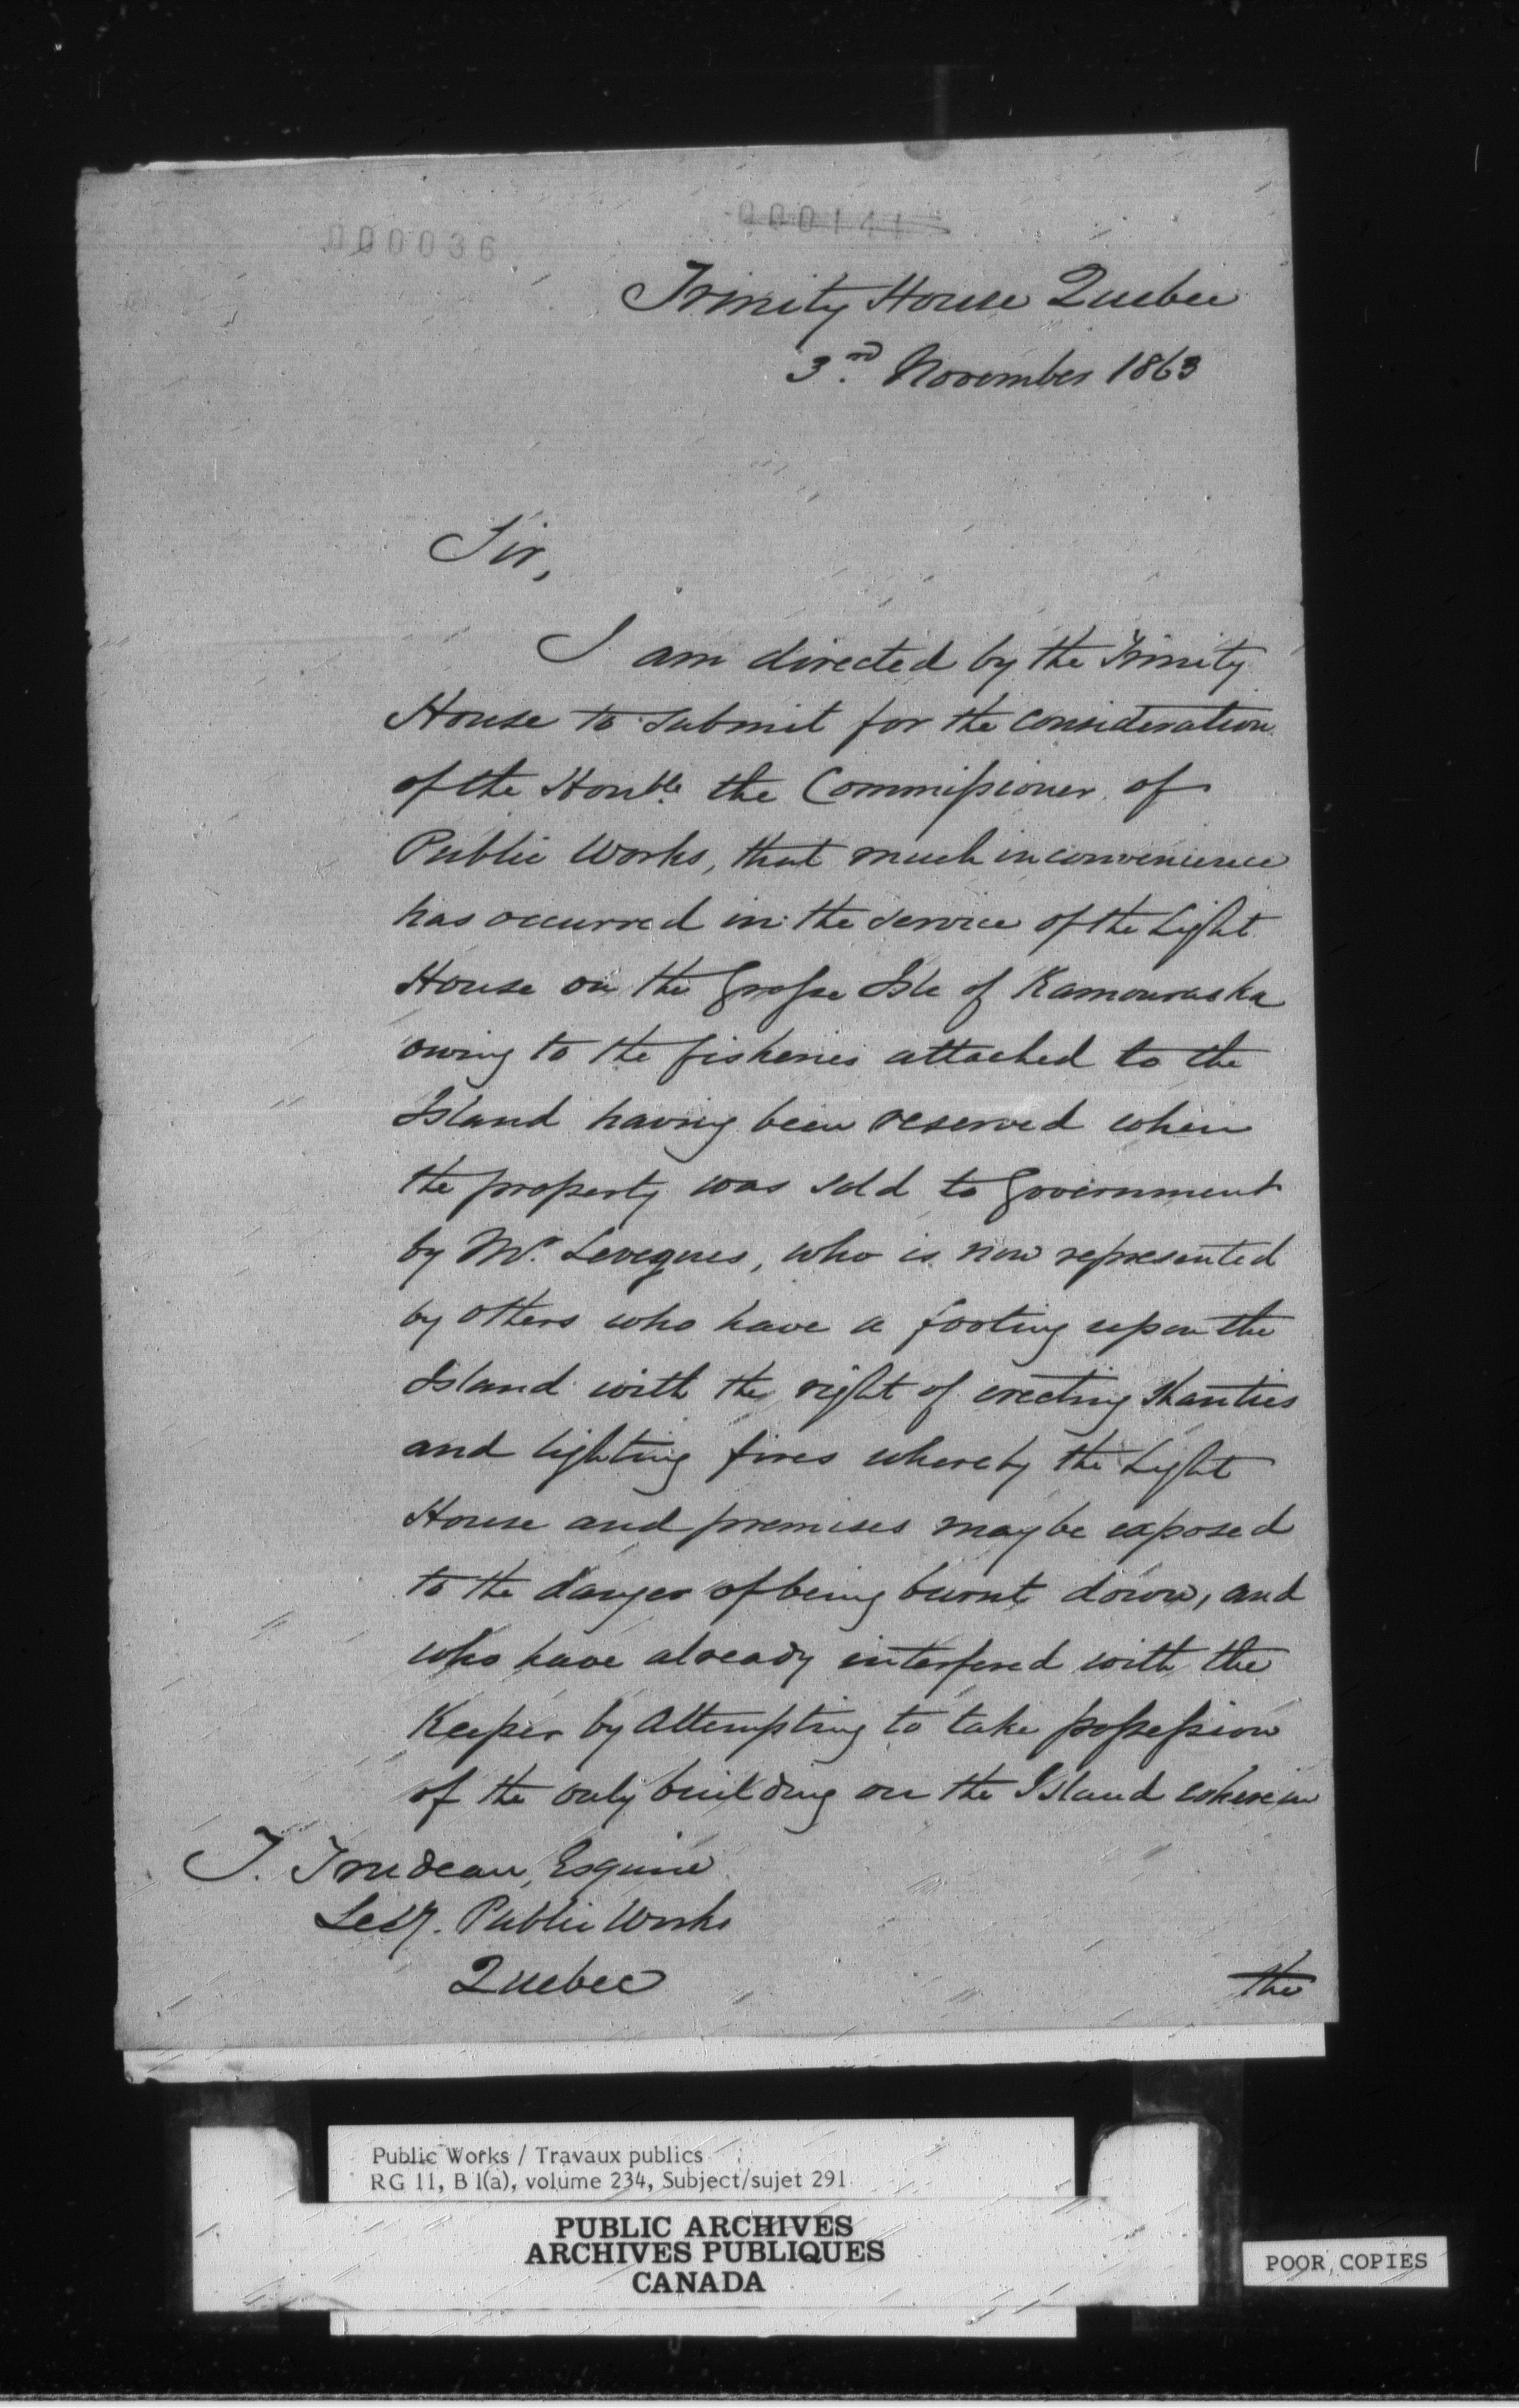 000036
000141
Trinity House Quebec
3rd November 1863
Sir,
I am directed by the Trinity
House to submit for the consideration
of the Honble. the Commissioner of
Public Works, that much inconvenience
has occurred in the service of the Light
House on the Grosse Isle of Kamouraska
owing to the fisheries attached to the
Island having been reserved when
the property was sold to Government
by Mr. Levegues, who is now represented
by others who have a footing upon the
Island with the right of erecting Shanties
and lighting fires whereby the Light
House and premises may be exposed
to the danger of being burnt down, and
who have already interfered with the
Keeper by attempting to take possession
of the only building on the Island wherein
T. Trudeau, Esquire
Secy. Public Works
Quebec
the
Public Works / Travaux publics
RG 11, B 1(a), volume 234, Subject/sujet 291
PUBLIC ARCHIVES
ARCHIVES PUBLIQUES
CANADA
POOR COPIES